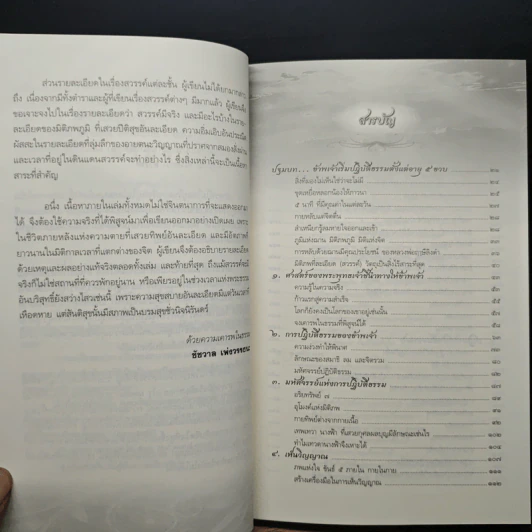 ส่วนรายละเอียดในเรื่องสวรรค์แต่ละชั้น ผู้เขียนไม่ได้ยกมากล่าว
ถึง เนื่องจากมีทั้งตำราและผู้ที่เขียนเรื่องสวรรค์ต่างๆ มีมากแล้ว ผู้เขียน
ขอเจาะจงไปในเรื่องรายละเอียดว่า สวรรค์มีจริง และมีอะไรบ้างในราย
ละเอียดของมิติภพภูมิ ที่เสวยปีติสุขอันละเอียด ความอิ่มเอิบอันประณีต
และเวลาที่อยู่ในดินแดนสวรรค์จะทำอย่างไร ซึ่งสิ่งเหล่านี้จะเป็นเนื้อหา
สาระที่สำคัญ
อนึ่ง เนื้อหาภายในเล่มทั้งหมดไม่ใช่จินตนาการที่จะแสดงออกมา
ได้ จึงต้องใช้ความจริงที่ได้พิสูจน์มาเพื่อเขียนออกมาอย่างเปิดเผย เพราะ
ในชีวิตภายหลังแห่งความตายที่เสวยทิพย์อันละเอียด และมีอัตภาพ
ยาวนานในมิติกาลเวลาที่แตกต่างของจิต ผู้เขียนจึงต้องอธิบายรายละเอียด
ด้วยเหตุและผลอย่างแท้จริงตลอดทั้งเล่ม และท้ายที่สุด ถึงแม้สวรรค์จะมี
จริงก็ไม่ใช่สถานที่ที่ควรพักอยู่นาน หรือเพียรอยู่ในช่วงเวลาแห่งพรหม
อันบริสุทธิ์ยิ่งสว่างไสวเช่นนี้ เพราะความสุขสบายอันละเอียดมีแต่ในเวลาที่
เหือดหาย แต่สันติสุขนั้นมีสภาพเป็นบรมสุขชั่วนิจนิรันดร์
ด้วยความเคารพในธรรม
ชัชวาล เพ่งวรรธนะ
สารบัญ
ปฐมบท... ข้าพเจ้าเริ่มปฏิบัติธรรมตั้งแต่อายุ ๕ ขวบ
สิ่งที่มองไม่เห็นใช่ว่าจะไม่มี
๕ นาที ที่มีคุณค่าในแต่ละวัน
กายหลับแต่จิตตื่น
สำเหนียกรู้ลมหายใจออกและเข้า
ภูมิแห่งมาร มิติภพภูมิ มิติแห่งจิต
การหลับด้วยฌานมีคุณประโยชน์ ของหลวงพ่อฤาษีลิงดำ
มิติภพที่ละเอียด (สวรรค์) วัตถุเป็นสิ่งไร้สาระที่สุด
๑. ศาสตร์ของพระพุทธเจ้าชี้นำทางให้ข้าพเจ้า
ความรู้ในความจริง
ก้าวแรกสู่ความสำเร็จ
โลกก็ยังคงเป็นโลกของเขาอยู่เช่นนั้น
จงเคารพในธรรมที่พิสูจน์ได้
๒. การปฏิบัติธรรมของข้าพเจ้า
ความง่วงทำให้พินาศ
ลักษณะของสมาธิ ลม และจิตรวม
มหัศจรรย์ปฏิบัติธรรม
๓. มหัศจรรย์แห่งการปฏิบัติธรรม
อริยทรัพย์ ๗
อุโมงค์แห่งมิติภพ
กายทิพย์ต่างจากกายเนื้อ
เทพเทวา นางฟ้า ที่เสวยกุศลผลบุญมีลักษณะเช่นไร
ทำไมเทวดานางฟ้าจึงเหาะได้
๔. เห็นวิญญาณ ๑๐๗
ภพแห่งใจ ขันธ์ ๕ ภายใน กายในกาย ๑๑๑
สร้างเครื่องมือในการเห็นวิญญาณ ๑๑๒